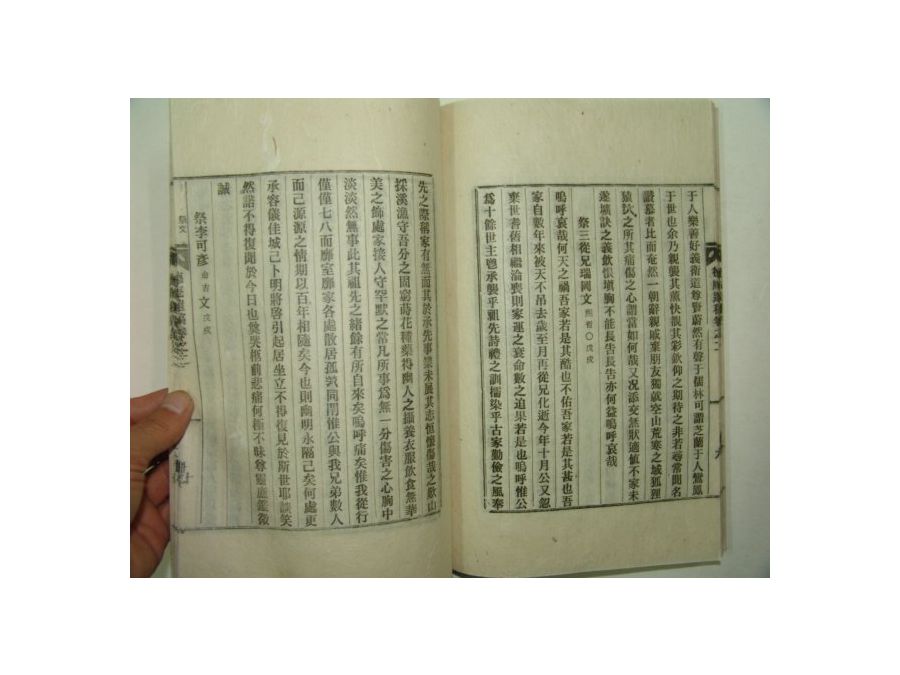 于人樂善好義衛道尊賢蔚然有聲于儒林可謂芝蘭于人鸞鳳
于世也余乃親襲其薰快覩其彩欽仰之期待之非若尋常聞名
讚慕者比而奄然一朝辭親戚棄朋友獨就空山荒寒之域狐狸
猿狖之所其痛傷之心謂當如何哉又况添交無狀適値不家未
遂壙訣之義飲恨塡胸不能長告長告亦何益嗚呼哀哉
祭三從兄瑞岡文 熙 〇戊戌
嗚呼哀哉何天之禍吾家若是其酷也不佑吾家若是其甚也吾
家自數年來被天不吊去歲至月再從兄化逝今年十月公又忽
棄世耆舊相繼淪喪則家運之衰命數之迫果若是也嗚呼惟公
爲十餘世主鬯承襲乎祖先詩禮之訓擩染乎古家勤儉之風奉
先之際稱家有無而其於承先事業未展其志恒懷傷哉之歎山
採溪漁守吾分之固窮蒔花種藥得幽人之攝養衣服飮食無華
美之飾處家接人守罕默之常凡所事爲無一分傷害之心胸中
淡淡然無事此其祖先之緖餘有所自來矣嗚呼痛矣惟我從行
僅僅七八而靡室靡家各處散居孤煢同閈惟公與我兄弟數人
而已源源之情期以百年相隨矣今也則幽明永隔已矣何處更
承容儀佳城已卜明將啓引起居坐立不得復見於斯世耶談笑
然諾不得復聞於今日也奠哭柩前悲痛何極不昧尊靈庶鑑微
誠
祭李可彥 文 戊戌
祭文